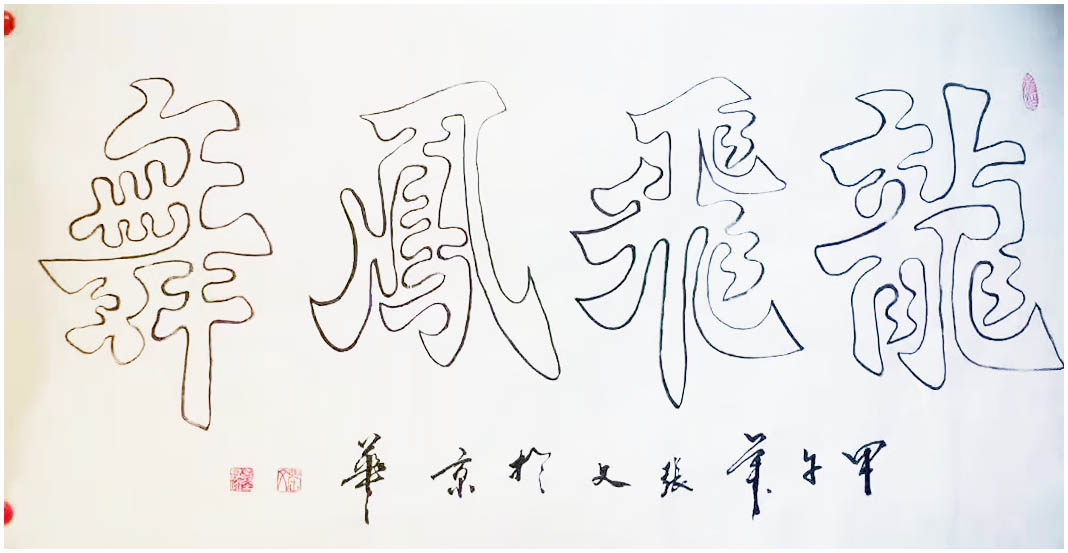 龍飛鳳舞
甲午張文於京華